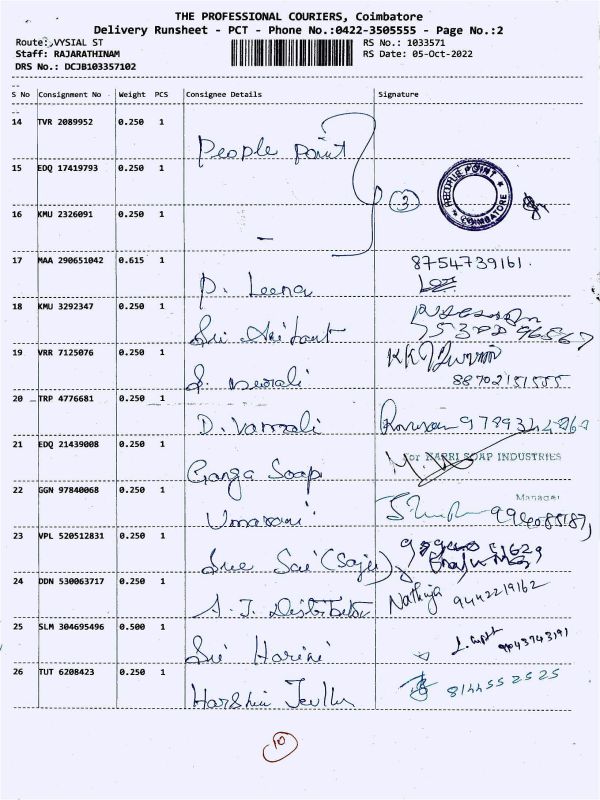 THE PROFESSIONAL COURIERS, Coimbatore
Delivery Runsheet - PCT - Phone No.:0422-3505555 - Page No.:2
Route: VYSIAL ST RS No.: 1033571
Staff: RAJARATHINAM RS Date: 05-Oct-2022
DRS No.: DCJB103357102
S No Consignment No Weight PCS Consignee Details Signature
14 TVR 2089952 0.250 1
People Point
15 EDQ 17419793 0.250 1
3
PEOPLE POINT
COIMBATORE
16 KMU 2326091 0.250 1
17 MAA 290651042 0.615 1 8754739161
P. Leena
18 KMU 3292347 0.250 1
Sri
19 VRR 7125076 0.250 1
S.
88702151555
20 TRP 4776681 0.250 1
D.
21 EDQ 21439008 0.250 1 For NARRI SOAP INDUSTRIES
Ganga Soap
22 GGN 97840068 0.250 1 Manager
Umarani
23 VPL 520512831 0.250 1
Sree Sai (Saju)
24 DDN 530063717 0.250 1
A. J. Distributor Nathiya 9442219162
25 SLM 304695496 0.500 1
Sri Harini 9043743191
26 TUT 6208423 0.250 1 8144552525
Harshini
10